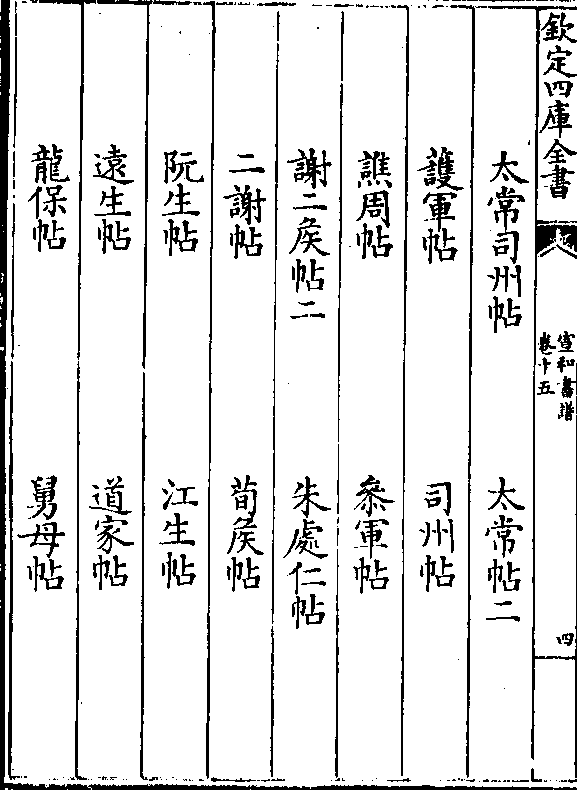 欽定四庫全書
宣和書譜
卷十五
四
太常司州帖
太常帖二
護軍帖
司州帖
譙周帖
叅軍帖
謝二矦帖二
朱處仁帖
二謝帖
荀矦帖
阮生帖
江生帖
遠生帖
道家帖
龍保帖
舅母帖